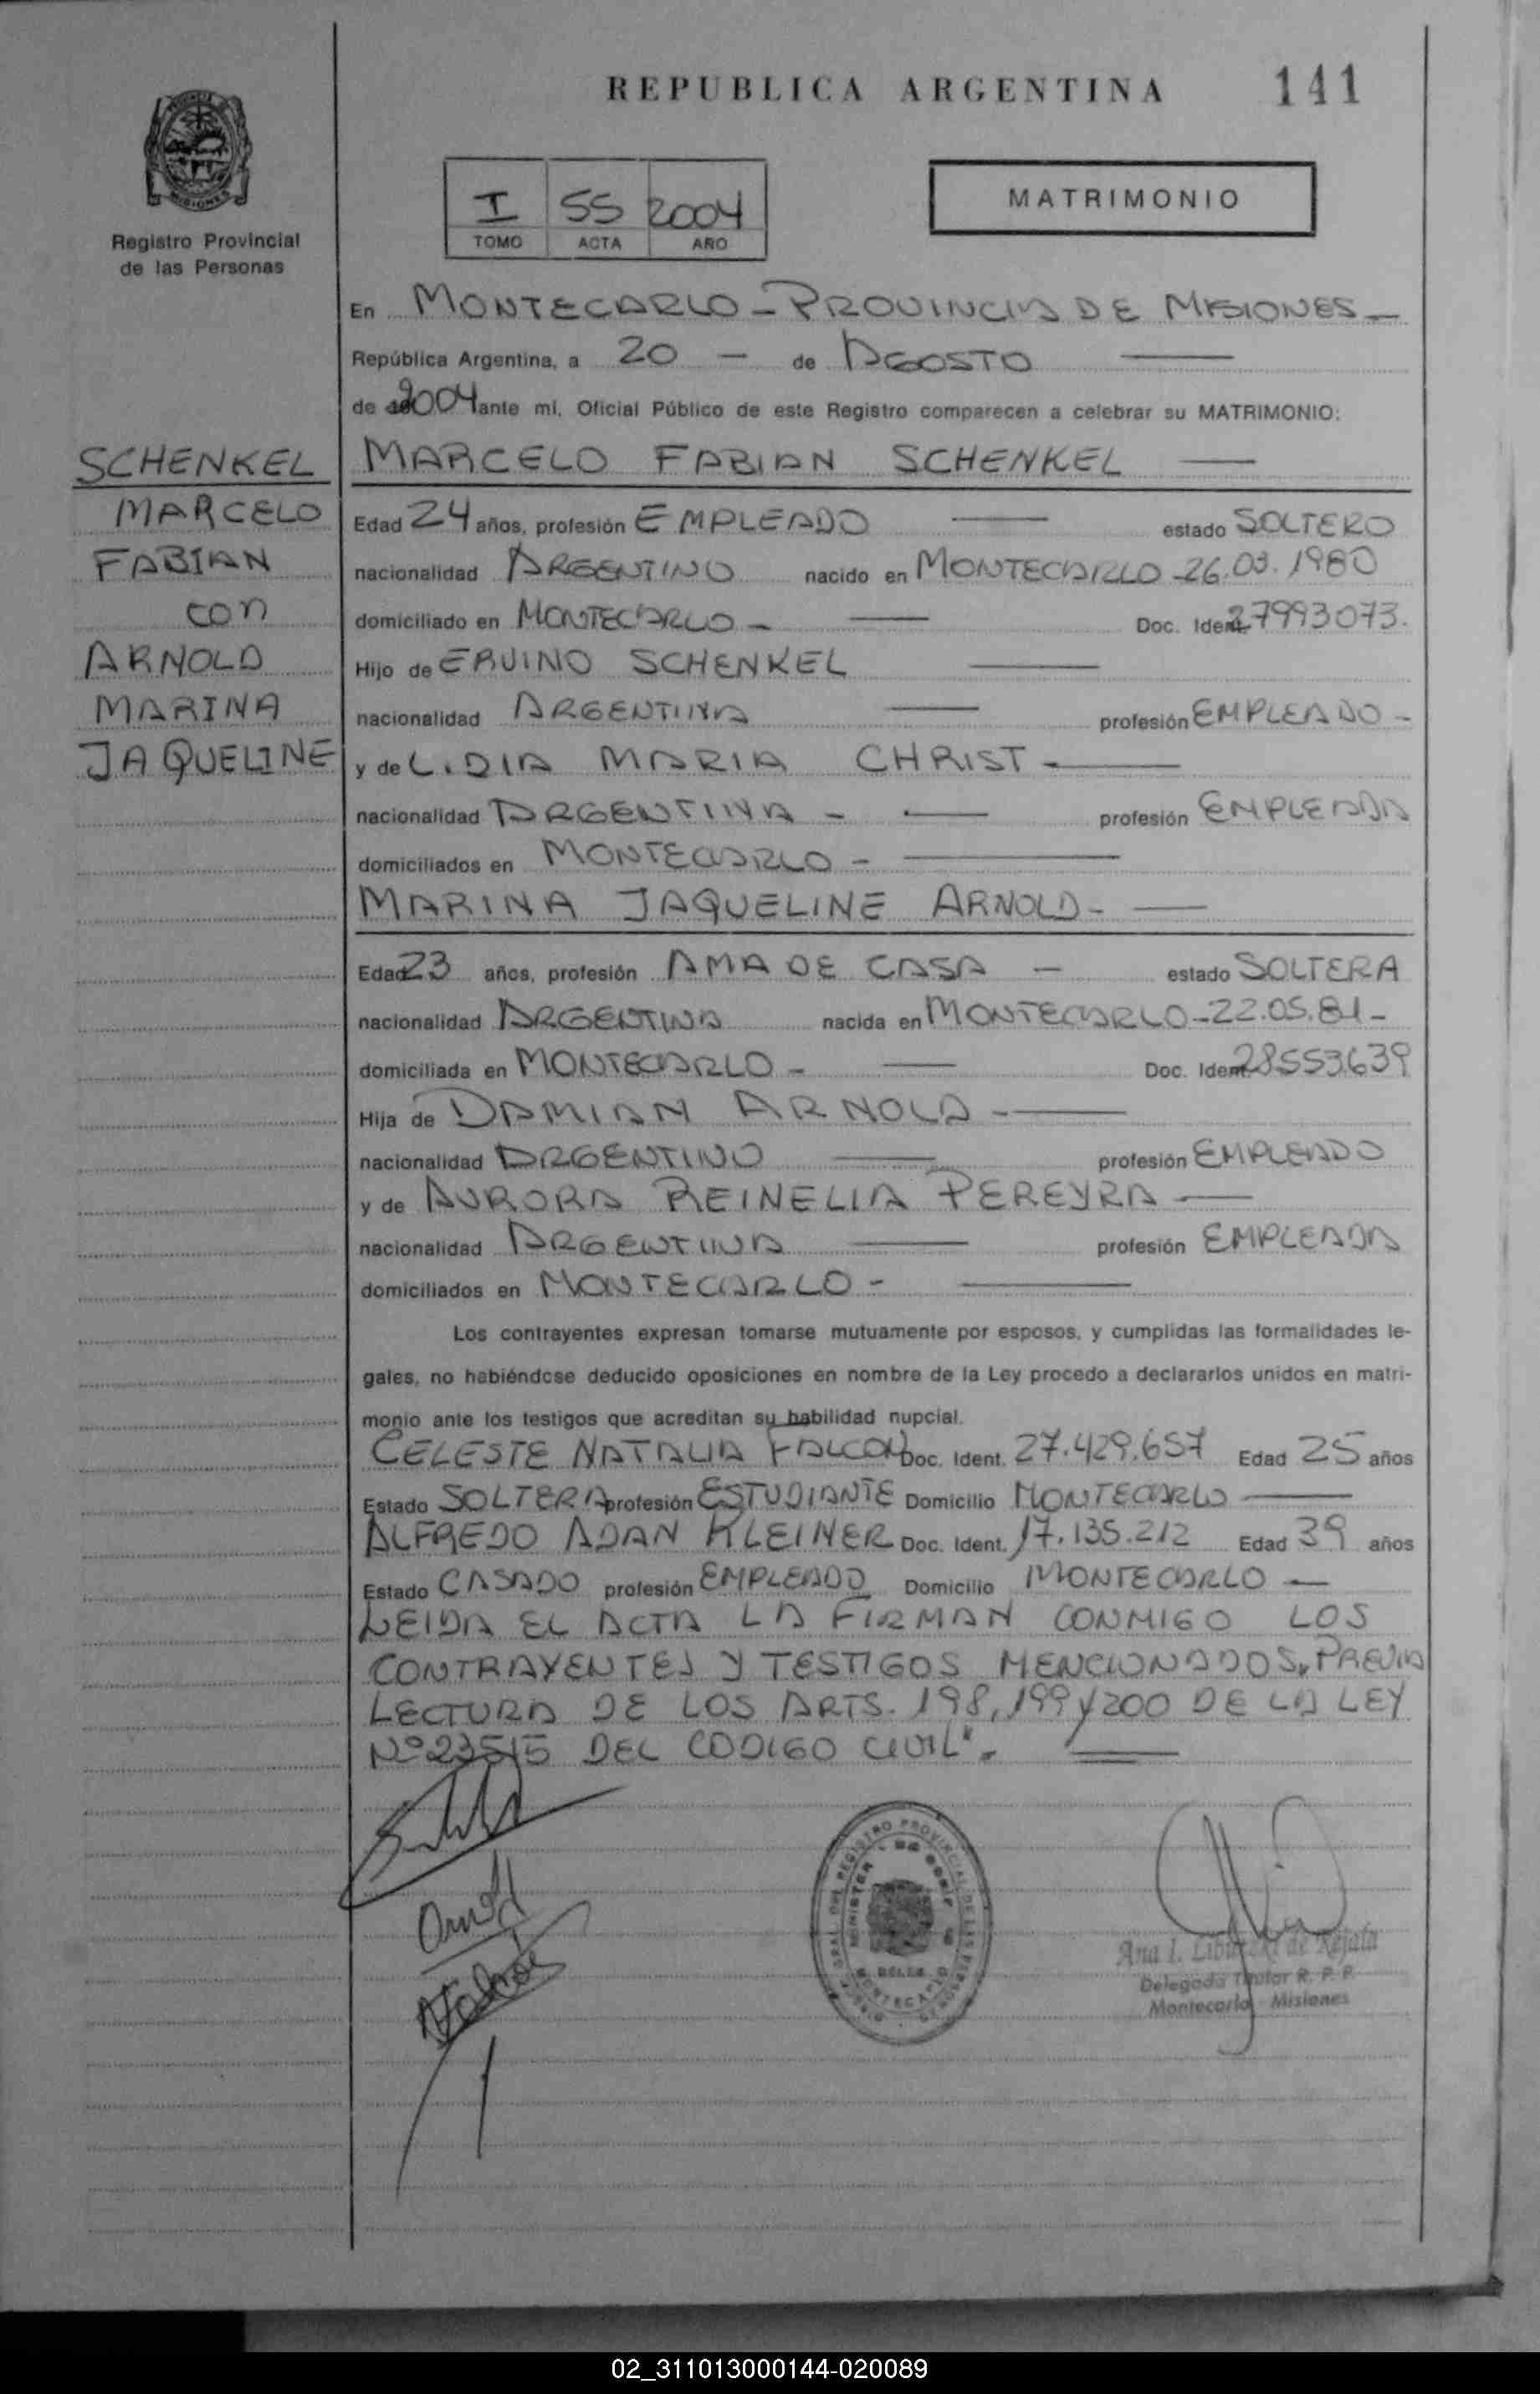 REPUBLICA ARGENTINA
141
MISIONES
Registro Provincial
de las Personas
I 55 2004
TOMO ACTA AÑO
MATRIMONIO
En MONTECARLO - PROVINCIA DE MISIONES -
República Argentina, a 20 - de AGOSTO
de 2004 ante mi, Oficial Público de este Registro comparecen a celebrar su MATRIMONIO:
SCHENKEL
MARCELO
FABIAN
con
ARNOLD
MARINA
JAQUELINE
MARCELO FABIAN SCHENKEL
Edad 24 años, profesión EMPLEADO estado SOLTERO
nacionalidad ARGENTINO nacido en MONTECARLO - 26.03.1980
domiciliado en MONTECARLO - Doc. Ident. 27993073.
Hijo de ERVINO SCHENKEL
nacionalidad ARGENTINA profesión EMPLEADO -
y de LIDIA MARIA CHRIST -
nacionalidad ARGENTINA - profesión EMPLEADA
domiciliados en MONTECARLO -
MARINA JAQUELINE ARNOLD -
Edad 23 años, profesión AMA DE CASA - estado SOLTERA
nacionalidad ARGENTINA nacida en MONTECARLO - 22.05.81 -
domiciliada en MONTECARLO - Doc. Ident. 28553639
Hija de DAMIAN ARNOLD -
nacionalidad ARGENTINO profesión EMPLEADO
y de AURORA REINELIA PEREYRA -
nacionalidad ARGENTINA profesión EMPLEADA
domiciliados en MONTECARLO -
Los contrayentes expresan tomarse mutuamente por esposos, y cumplidas las formalidades le-
gales, no habiéndose deducido oposiciones en nombre de la Ley procedo a declararlos unidos en matri-
monio ante los testigos que acreditan su habilidad nupcial.
CELESTE NATALIA FALCON Doc. Ident. 27.429.657 Edad 25 años
Estado SOLTERA profesión ESTUDIANTE Domicilio MONTECARLO
ALFREDO ADAN KLEINER Doc. Ident. 17.135.212 Edad 39 años
Estado CASADO profesión EMPLEADO Domicilio MONTECARLO -
LEIDA EL ACTA LA FIRMAN CONMIGO LOS
CONTRAYENTES Y TESTIGOS MENCIONADOS, PREVIA
LECTURA DE LOS ARTS. 198, 199 y 200 DE LA LEY
Nº 23515 DEL CODIGO CIVIL".
Arnold
Ana I. de
Delegada Titular R. P. P.
Montecarlo - Misiones
02_311013000144-020089